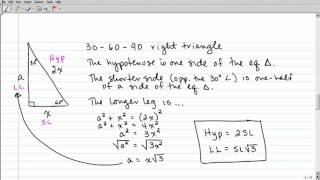 30-60-90 right triangle
The hypotenuse is one side of the eq Δ.
The shorter side (opp. the 30° ∠) is one-half
of a side of the eq. Δ.
The longer leg is ...
a² + x² = (2x)²
a² + x² = 4x²
a² = 3x²
√a² = √3x²
a = x√3
Hyp = 2SL
LL = SL√3
30°
Hyp
2x
a
LL
60°
x
SL